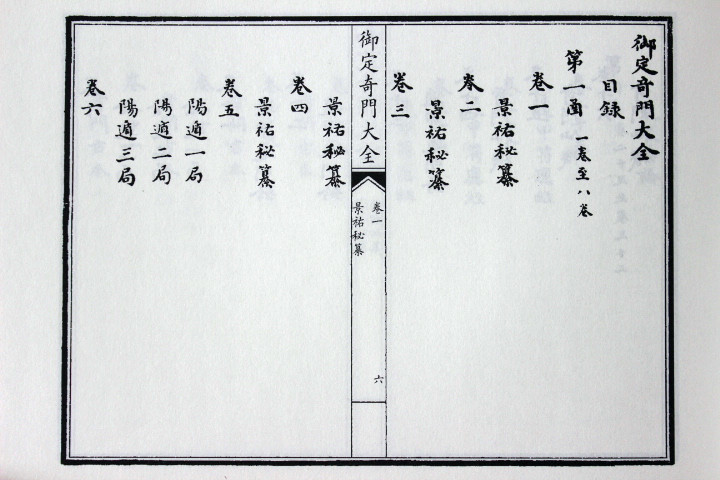 御定奇門大全
目錄
第一函 一卷至八卷
卷一
景祐秘纂
卷二
景祐秘纂
卷三
御定奇門大全
卷一
景祐秘纂
六
景祐秘纂
卷四
景祐秘纂
卷五
陽遁一局
陽遁二局
陽遁三局
卷六